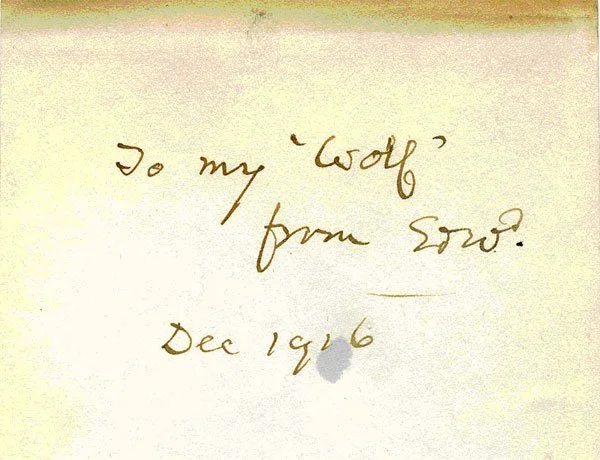 To my 'Wolf'
from Edwd.
Dec 1916